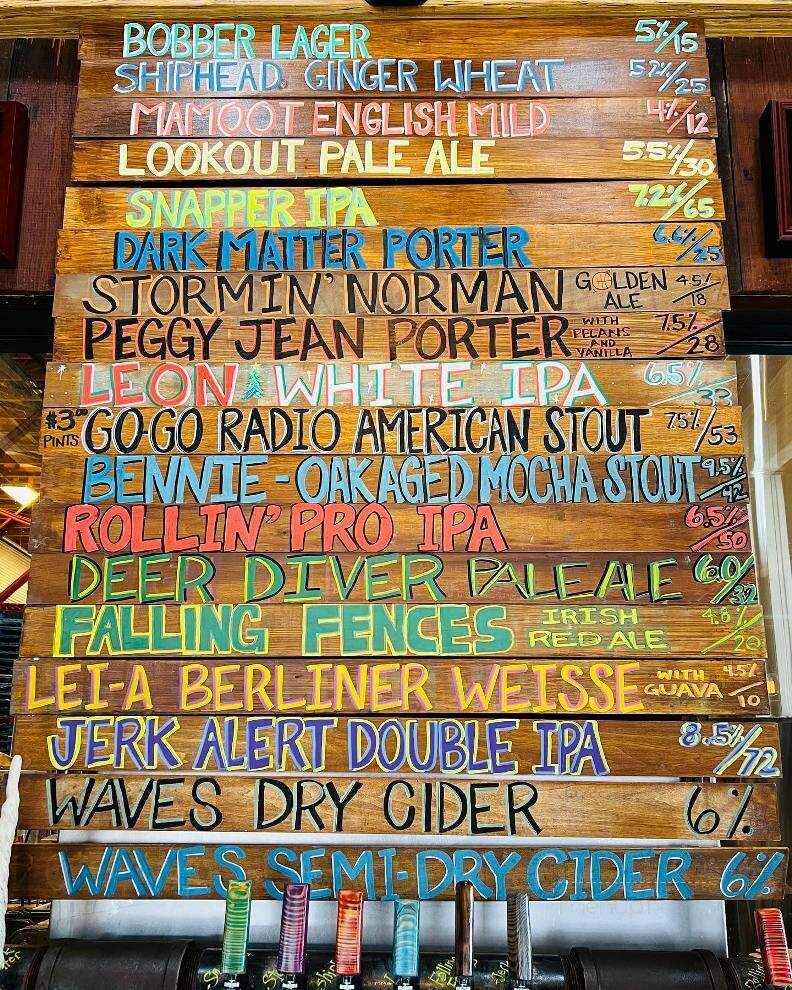 BOBBER LAGER 5%/15
SHIPHEAD GINGER WHEAT 5.2%/25
MAMOOT ENGLISH MILD 4%/12
LOOKOUT PALE ALE 5.5%/30
SNAPPER IPA 7.2%/65
DARK MATTER PORTER 6.6%/25
STORMIN' NORMAN GOLDEN ALE 4.5%/18
PEGGY JEAN PORTER WITH PECANS AND VANILLA 7.5%/28
LEON WHITE IPA 6.5%/33
$3.00 PINTS GO-GO RADIO AMERICAN STOUT 7.5%/53
BENNIE - OAK AGED MOCHA STOUT 9.5%/42
ROLLIN' PRO IPA 6.5%/50
DEER DIVER PALE ALE 6.0/32
FALLING FENCES IRISH RED ALE 4.8%/20
LEI-A BERLINER WEISSE WITH GUAVA 4.5%/10
JERK ALERT DOUBLE IPA 8.5%/72
WAVES DRY CIDER 6%
WAVES SEMI-DRY CIDER 6%